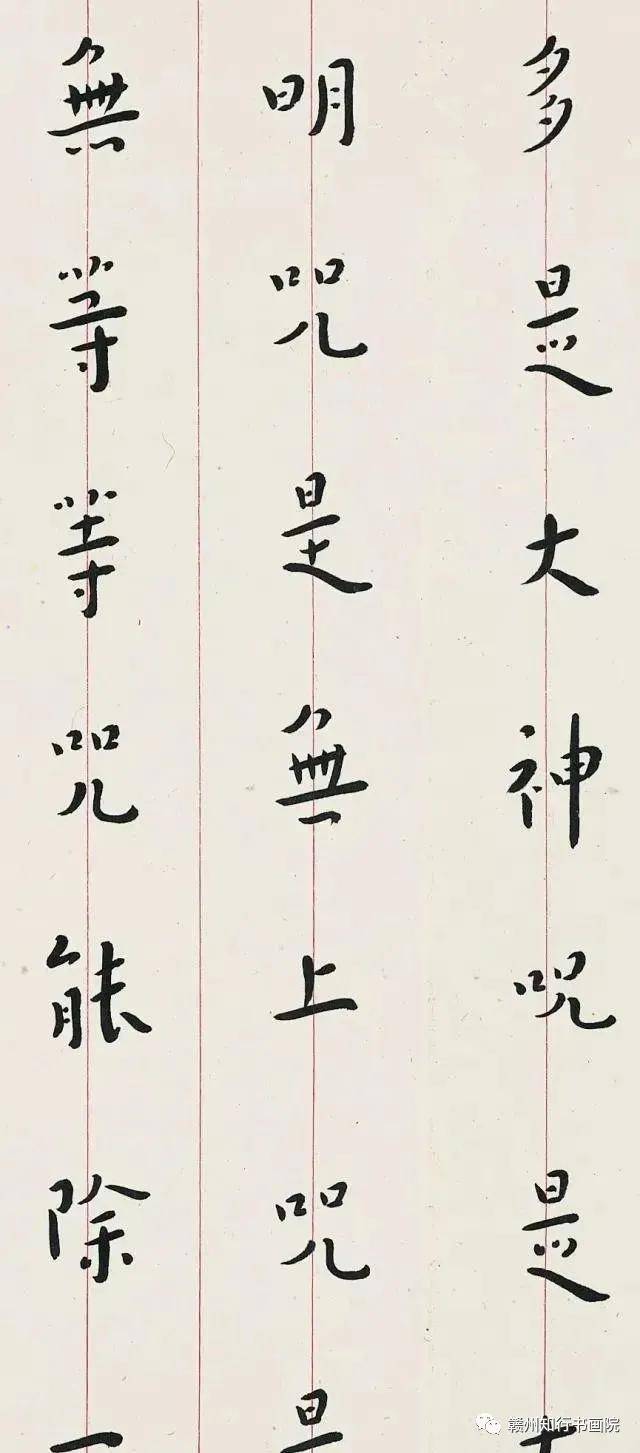 多是大神咒是
明咒是無上咒是
無等等咒能除一
赣州知行书画院